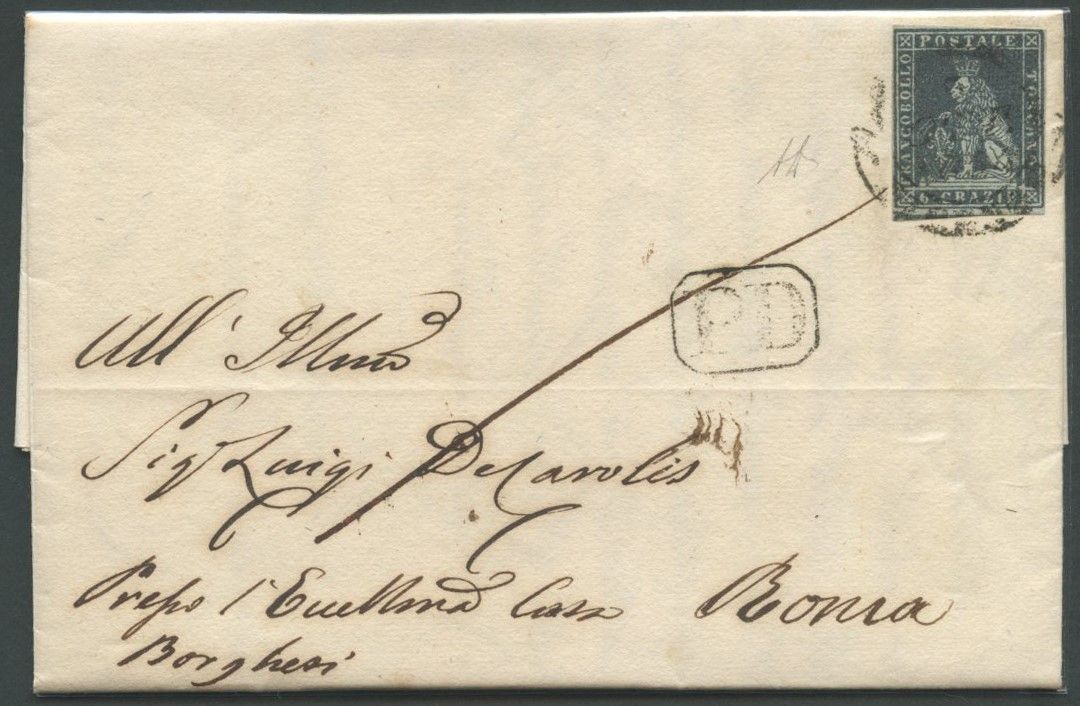 FRANCOBOLLO
POSTALE
TOSCANO
6 CRAZIE
PD
All' Illmo
Sigr Luigi De Carolis
Presso l'Eccellma Casa Roma
Borghesi